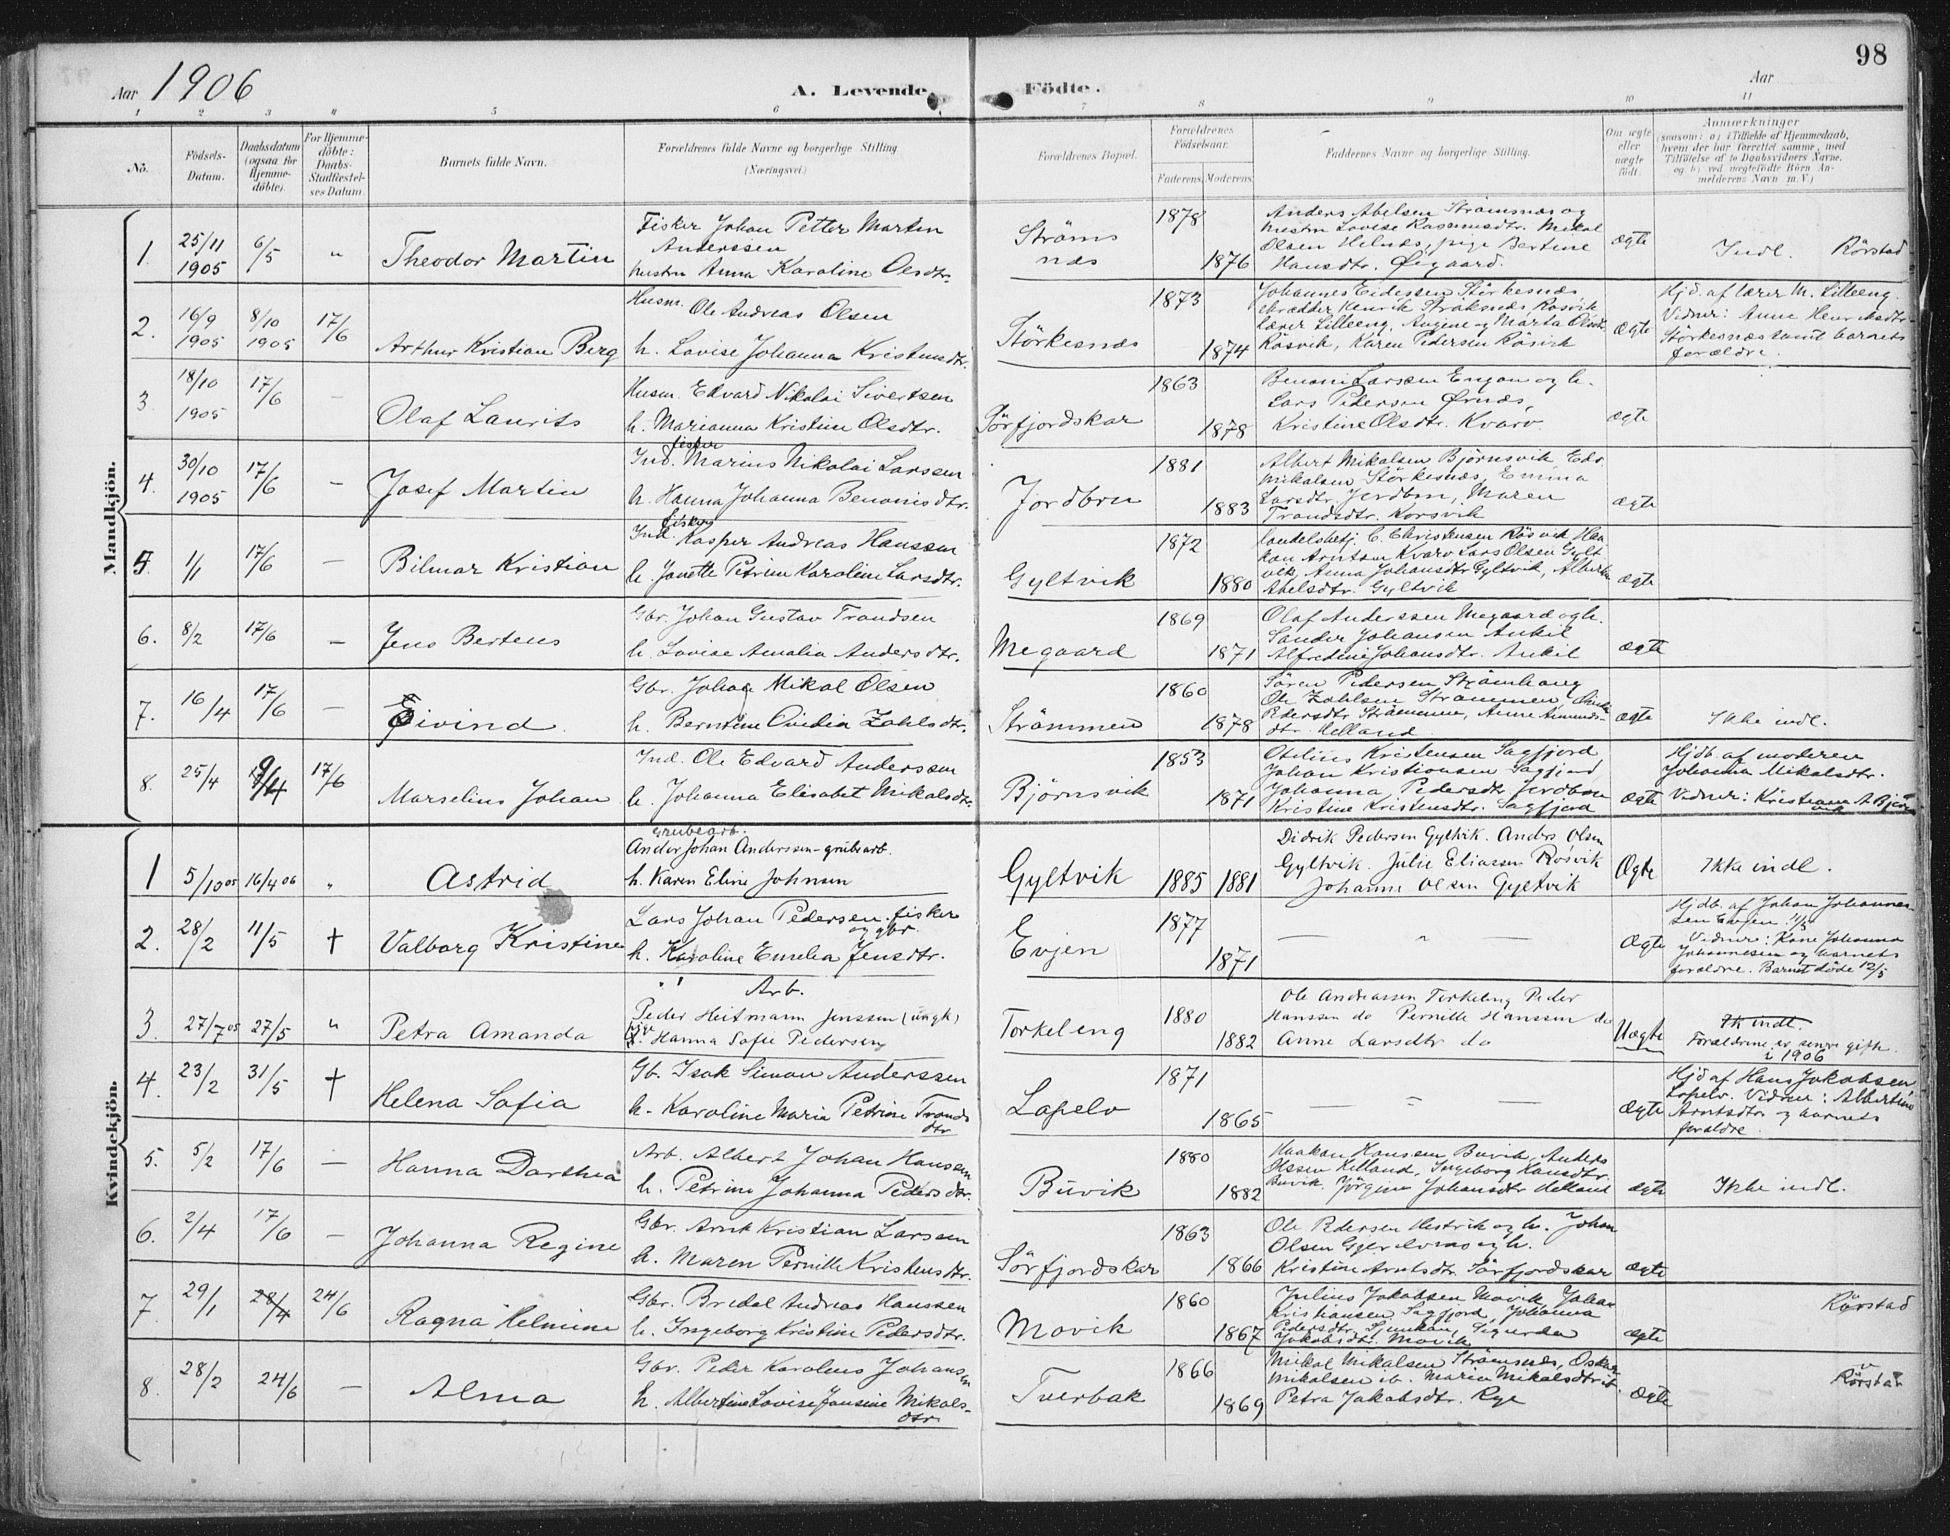 98
Aar 1906
A. Levende Födte.
Aar
1 2 3 4 5 6 7 8 9 10 11
No.
Födsels-Datum.
Daabsdatum (ogsaa for Hjemmedöbte).
For Hjemmedöbte: Daabs-Stadfæstelses Datum
Barnets fulde Navn.
Forældrenes fulde Navne og borgerlige Stilling (Næringsvei.)
Forældrenes Bopæl.
Forældrenes Födselsaar.
Faderens Moderens
Faddernes Navne og borgerlige Stilling.
Om ægte eller uægte födt.
Anmærkninger
(saasom: a) i Tilfælde af Hjemmedaab,
hvem der har forrettet samme, med
Tilföielse af to Daabsvidners Navne,
og b) ved uægtefödte Börn An-
melderens Navn m. V.)
Mandkjön.
1. 25/11 1905 6/5 " Theodor Martin
Fisker Johan Petter Martin
Anderssen
hustru Anna Karoline Olsdtr.
Ströms
næs
1878
1876
Anders Abelsen Strömsnæs og
hustru Lovise Rasmusdtr. Mikal
Olsen Helnæs, pige Bertine
Hansdtr. Øigaard.
ægte
Indl. Rörstad
2. 16/9 1905 8/10 1905 17/6 Arthur Kristian Berg
Husm. Ole Andreas Olsen
h. Lovise Johanna Kristensdtr.
Störkesnæs
1873
1874
Johannes Eidessen Störkesnæs
lærer Lilleeng, Augene og Marta Olsdtr.
Rösvik, Karen Pedersen Rösvik
ægte
Hjd. af lærer M. Lilleeng.
Vidner: Anne Henriksdtr
Störkesnæs samt barnets
forældre.
3 18/10 1905 17/6 — Olaf Laurits
Husm. Edvard Nikolai Sivertsen
h. Marianna Kristine Olsdtr.
Sörfjordskar
1863
1878
Benoni Larssen Engan og h.
Lars Pedersen Ørnæs
Kristine Olsdtr. Kvarv
ægte
4. 30/10 1905 17/6 — Josef Martin
fisker
Ind. Marius Nikolai Larssen
h. Hanna Johanna Benonisdtr.
Jordbru
1881
1883
Albert Mikalsen Björnsvik, Edv.
Mikalsen Störkesnæs, Emma
Larsdtr. Jordbru, Maren
Trondsdtr. Korsvik
ægte
5. 1/1 17/6 — Bilmar Kristian
fisker
Ind. Kasper Andreas Hanssen
h. Janette Petrine Karoline Larsdtr.
Gyltvik
1872
1880
handelsbetj. C. Christensen Rösvik Haa-
kon Arntsen Kvarv Lars Olsen Gylt
vik, Anna Johansdtr Gyltvik,
Abelsdtr. Gyltvik
ægte
6. 8/2 17/6 — Jens Berteus
Gbr. Johan Gustav Trondsen
h. Lovise Amalia Andersdtr.
Megaard
1869
1871
Olaf Anderssen Megaard og h.
Sander Johansen Ankil
Alfredine Johansdtr. Ankil
ægte
7. 16/4 17/6 — Eivind
Gbr. Johan Mikal Olsen
h. Berntine Ovidia Zahlsdtr.
Strömmen
1860
1878
Sören Pedersen Strömhaug
Ole Zahlsen Strömmen
Pedersdtr Strömmen, Anne Amunds-
dtr. Helland
ægte
Ikke indl.
8. 25/4 9/4 17/6 Marselius Johan
Ind. Ole Edvard Anderssen
h. Johanna Elisabet Mikalsdtr.
Björnsvik
1853
1871
Otelius Kristensen Sagfjord
Johan Kristiansen Sagfjord
Johanna Pedersdtr Jordbru
Kristine Kristensdtr. Sagfjord
ægte
Hjdb. af moderen
Johanna Mikalsdtr.
Vidner: Kristiana A. Björns
vik
Kvindekjön.
1 5/10 05 16/4 06 " Astrid
Grubearb.
Ander Johan Anderssen - grubearb.
h. Karen Eline Johnsen
Gyltvik
1885 1881
Didrik Pedersen Gyltvik. Anders Olsen
Gyltvik. Julie Eliassen Rosvik
Johanne Olsen Gyltvik
Ægte
Ikke indl.
2. 28/2 11/5 † Valborg Kristine
Lars Johan Pedersen, fisker
og gbr.
h. Karoline Emelia Jensdtr.
Evjen
1877
1871
— " —
Ægte
Hjdb. af Johan Johannes-
sen Evjen 11/5
Vidner: Kone Johanna
Johannesen og barnets
forældre. Barnet döde 12/5
3 27/7 05 27/5 " Petra Amanda
Arb.
Peder Heitmann Jenssen (ungk)
pige
Hanna Sofie Pedersen
Torkeleng
1880
1882
Ole Andreassen Torkeleng Peder
Hanssen do Pernille Hanssen do
Anne Larsdtr do
Uægte
Ik indl.
Forældrene er senere gifte
i 1906
4. 23/2 31/5 † Helena Sofia
Gb. Isak Simon Anderssen
h. Karoline Maria Petrine Tronds
dtr.
Lapelv
1871
1865
— " —
ægte
Hjd af Hans Jakobsen
Lapelv. Vidner: Albertine
Arntsdtr og barnets
forældre.
5. 5/2 17/6 — Hanna Dorthea
Arb. Albert Johan Hansen
h. Petrine Johanna Pedersdtr.
Buvik
1880
1882
Haakon Hanssen Buvik, Anders
Olssen Helland, Ingeborg Hansdtr.
Buvik. Jörgine Johansdtr Helland
ægte
Ikke indl.
6. 2/4 17/6 — Johanna Regine
Gbr. Arnt Kristian Larssen
h. Maren Pernille Kristensdtr.
Sörfjordskar
1863
1866
Ole Pedersen Hestvik og h. Johan
Olsen
Kristine Arntsdtr. Sörfjordskar
ægte
7 29/1 28/4 24/6 Ragna Helmine
Gbr. Bredal Andreas Hanssen
h. Ingeborg Kristine Pedersdtr.
Movik
1860
1867
Julius Jakobsen Movik Johan
Kristiansen Sagfjord, Johanna
Pedersdtr. Sjunkan, Sigurda
Jakobsdtr. Movik
ægte
Rörstad
8. 28/2 24/6 — Alma
Gbr. Peder Karolius Johansen
h. Albertine Lovise Jansine Mikals-
dtr.
Tverbak
1866
1869
Mikal Mikalsen Strömsnæs, Oskar
Mikalsen ib. Maria Mikalsdtr ib.
Petra Jakobsdtr. Rye
ægte
Rörstad